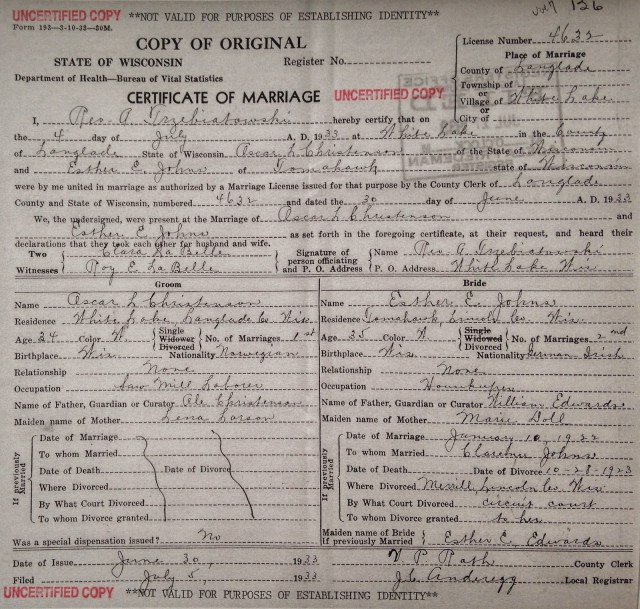 UNCERTIFIED COPY **NOT VALID FOR PURPOSES OF ESTABLISHING IDENTITY** 126
Form 182—3-10-32—30M.
COPY OF ORIGINAL
License Number 4632
STATE OF WISCONSIN Register No.
Place of Marriage
Department of Health—Bureau of Vital Statistics
County of Langlade
Township of
or
CERTIFICATE OF MARRIAGE UNCERTIFIED COPY
Village of White Lake
or
City of
I, Rev. A. Trzebiatowski hereby certify that on
the 4 day of July A. D. 1933 at White Lake in the County
of Langlade State of Wisconsin Oscar L Christenson of the State of Wisconsin
and Esther E. Johns of Tomahawk state of Wisconsin
were by me united in marriage as authorized by a Marriage License issued for that purpose by the County Clerk of Langlade
County and State of Wisconsin, numbered 4632 and dated the 30 day of June A. D. 1933
We, the undersigned, were present at the Marriage of Oscar L Christenson and
Esther E. Johns as set forth in the foregoing certificate, at their request, and heard their
declarations that they took each other for husband and wife.
Two Witnesses Clara La Belle
Roy E. La Belle
Signature of person officiating and P. O. Address
Name Rev. A. Trzebiatowski
P. O. Address White Lake Wis
Groom
Name Oscar L Christenson
Residence White Lake, Langlade Co Wis
Age 24 Color W. Single Widower Divorced No. of Marriages 1st
Birthplace Wis Nationality Norwegian
Relationship None
Occupation Saw Mill Laborer
Name of Father, Guardian or Curator Ole Christenson
Maiden name of Mother Lena Larson
If previously Married
Date of Marriage
To whom Married
Date of Death Date of Divorce
Where Divorced
By What Court Divorced
To whom Divorce granted
Was a special dispensation issued? No
Bride
Name Esther E. Johns
Residence Tomahawk, Lincoln Co. Wis.
Age 25 Color W Single Widowed Divorced No. of Marriages 2nd
Birthplace Wis Nationality German Irish
Relationship None
Occupation Housekeeper
Name of Father, Guardian or Curator William Edwards
Maiden name of Mother Marie Doll
If previously Married
Date of Marriage January 10, 1922
To whom Married Johns
Date of Death Date of Divorce 10-28-1923
Where Divorced Merrill, Lincoln Co Wis
By What Court Divorced circuit court
To whom Divorce granted to her
Maiden name of Bride
If previously Married Esther E. Edwards
Date of Issue June 30, 1933
County Clerk
Filed July 5, 1933
J.C. Anderegg Local Registrar
UNCERTIFIED COPY **NOT VALID FOR PURPOSES OF ESTABLISHING IDENTITY**